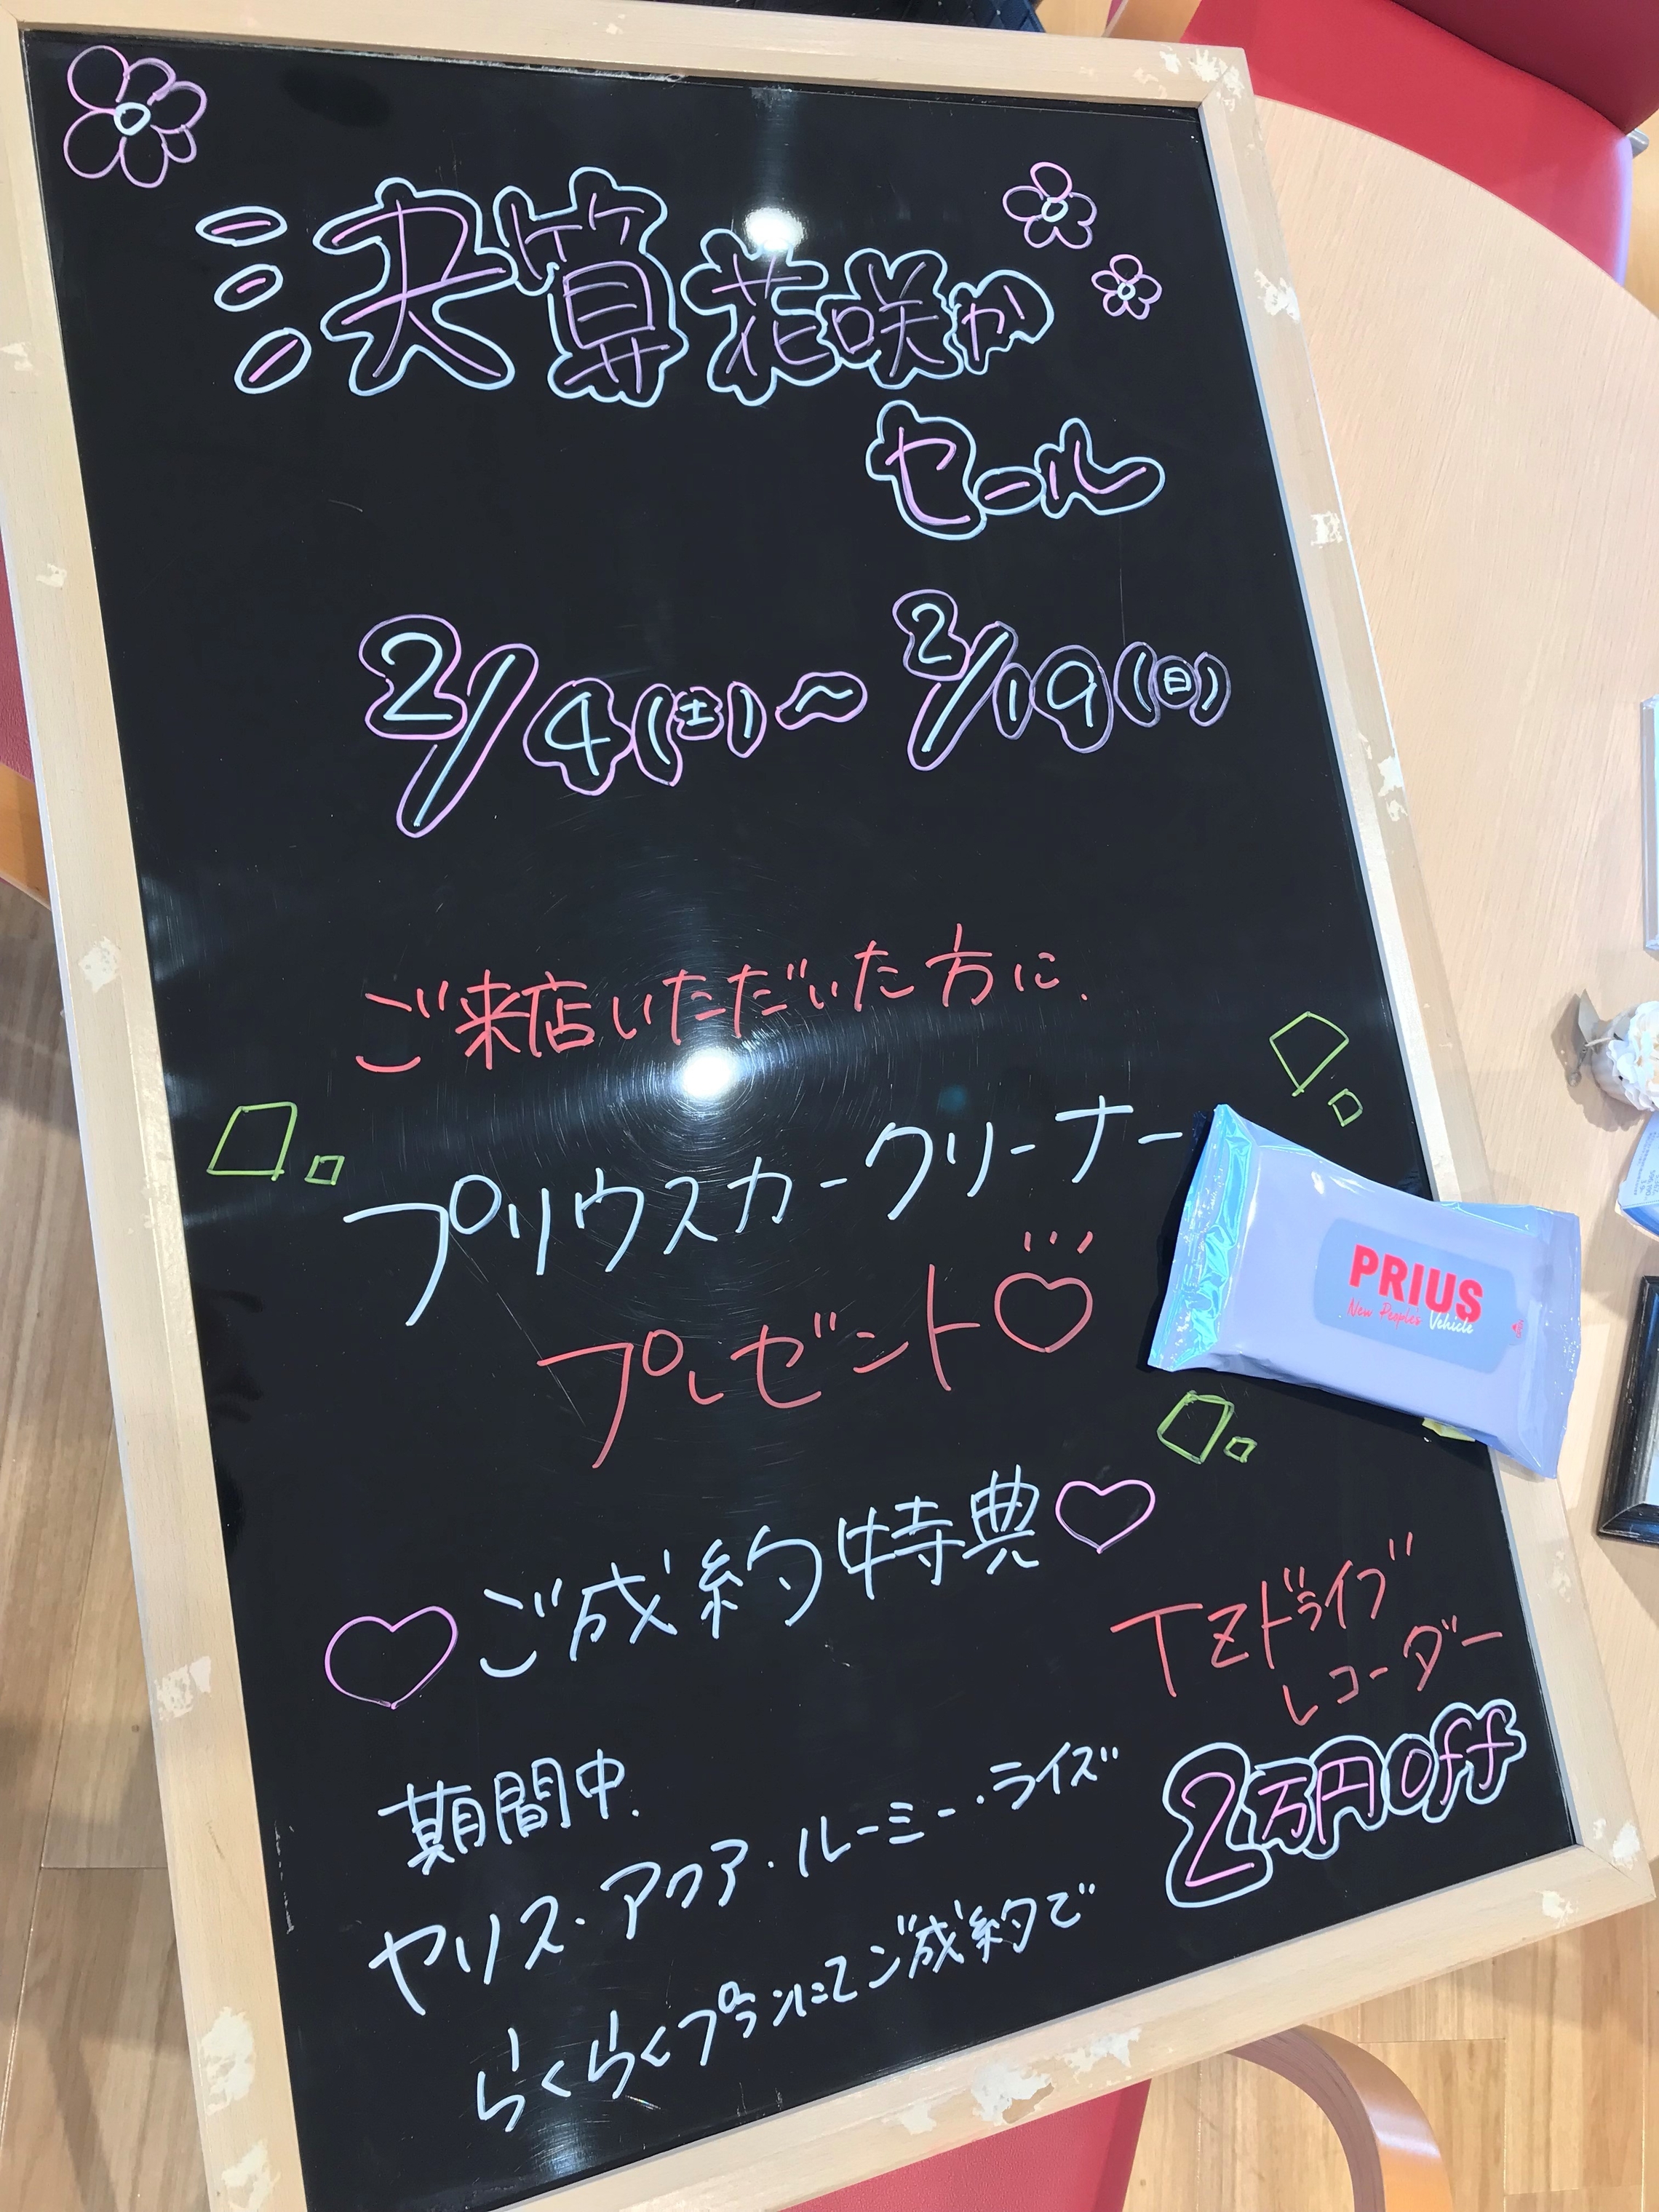 決算花咲か
セール
2/4(土)～2/19(日)
ご来店いただいた方に、
プリウスカークリーナー
プレゼント
PRIUS
New People's Vehicle
ご成約特典
TZドライブ
レコーダー
2万円off
期間中、
ヤリス・アクア・ルーミー・ライズ
らくらくプランにてご成約で